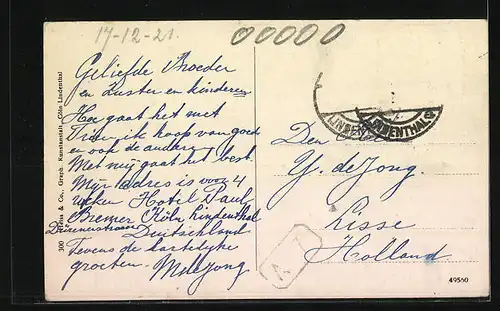 17-12-21.
00000
Geliefde Broeder
en Zuster en kinderen
Hoe gaat het met
ik hoop van goed
en ook de andere
Met mij gaat het best
Mijn adres is voor 4
weken Hotel Paul
Bremer Köln Lindenthal
Dürenerstrasse Deutschland
Tevens de hartelyke
groeten. M de Jong
Den
Y. de Jong.
Lisse
Holland
LINDENTHAL
300 & Co., Graph. Kunstanstalt, Cöln Lindenthal
49560